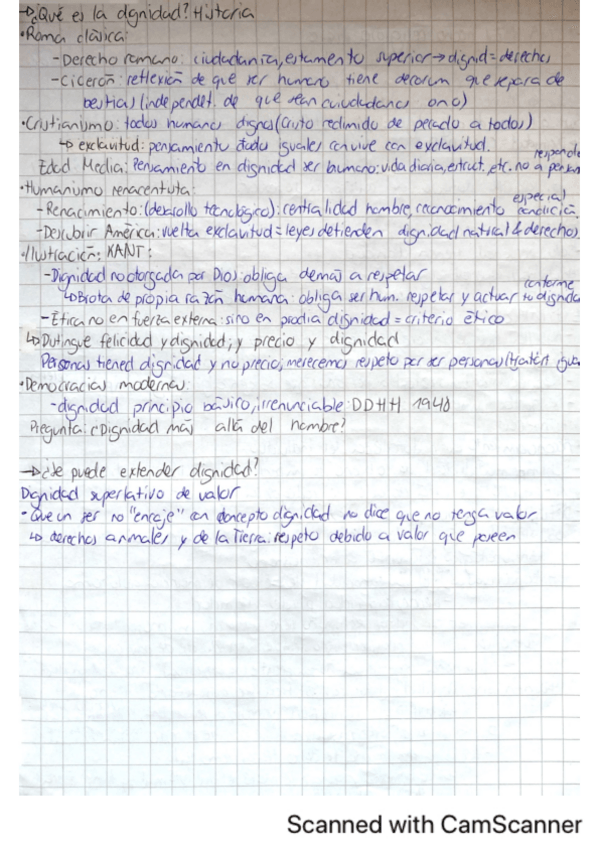 →¿Qué es la dignidad? Historia
•Roma clásica:
-Derecho romano: ciudadanía, estamento superior→dignid=derechos
-Cicerón: reflexión de que ser humano tiene decorum que separa de
bestias (independet. de que sean ciudadanos o no)
•Cristianismo: todos humanos dignos (Cristo redimido de pecado a todos)
↳ esclavitud: pensamiento todos iguales convive con esclavitud.
responde
Edad Media: Pensamiento en dignidad ser humano: vida diaria, estruct, etc. no a
•Humanismo renacentista:
especial
-Renacimiento: (desarollo tecnológico): centralidad hombre, reconocimiento condición
-Descubrir América: vuelta esclavitud = leyes defienden dignidad natural & derechos
•Ilustración: KANT:
-Dignidad no otorgada por Dios: obliga demás a respetar
conforme
↳Brota de propia razón humana: obliga ser hum. respetar y actuar su dignida
-Ética no en fuerza externa: sino en propia dignidad = criterio ético
↳Distingue felicidad y dignidad; y precio y dignidad
Personas tiened dignidad y no precio; merecemos respeto por ser personas
•Democracias modernas:
-dignidad principio básico, irrenunciable DDHH 1948
Pregunta: ¿Dignidad más allá del hombre?
→¿Se puede extender dignidad?
Dignidad superlativo de valor
•Que un ser no "encaje" con concepto dignidad no dice que no tenga valor
↳ derechos animales y de la Tierra: respeto debido a valor que poseen
Scanned with CamScanner